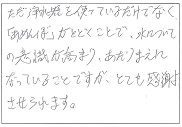 ただ浄水器を使っているだけでなく
「あめんぼ」がとどくことで、水について
の意識が高まり、あたりまえに
なっていることですが、とても感謝
させられます。